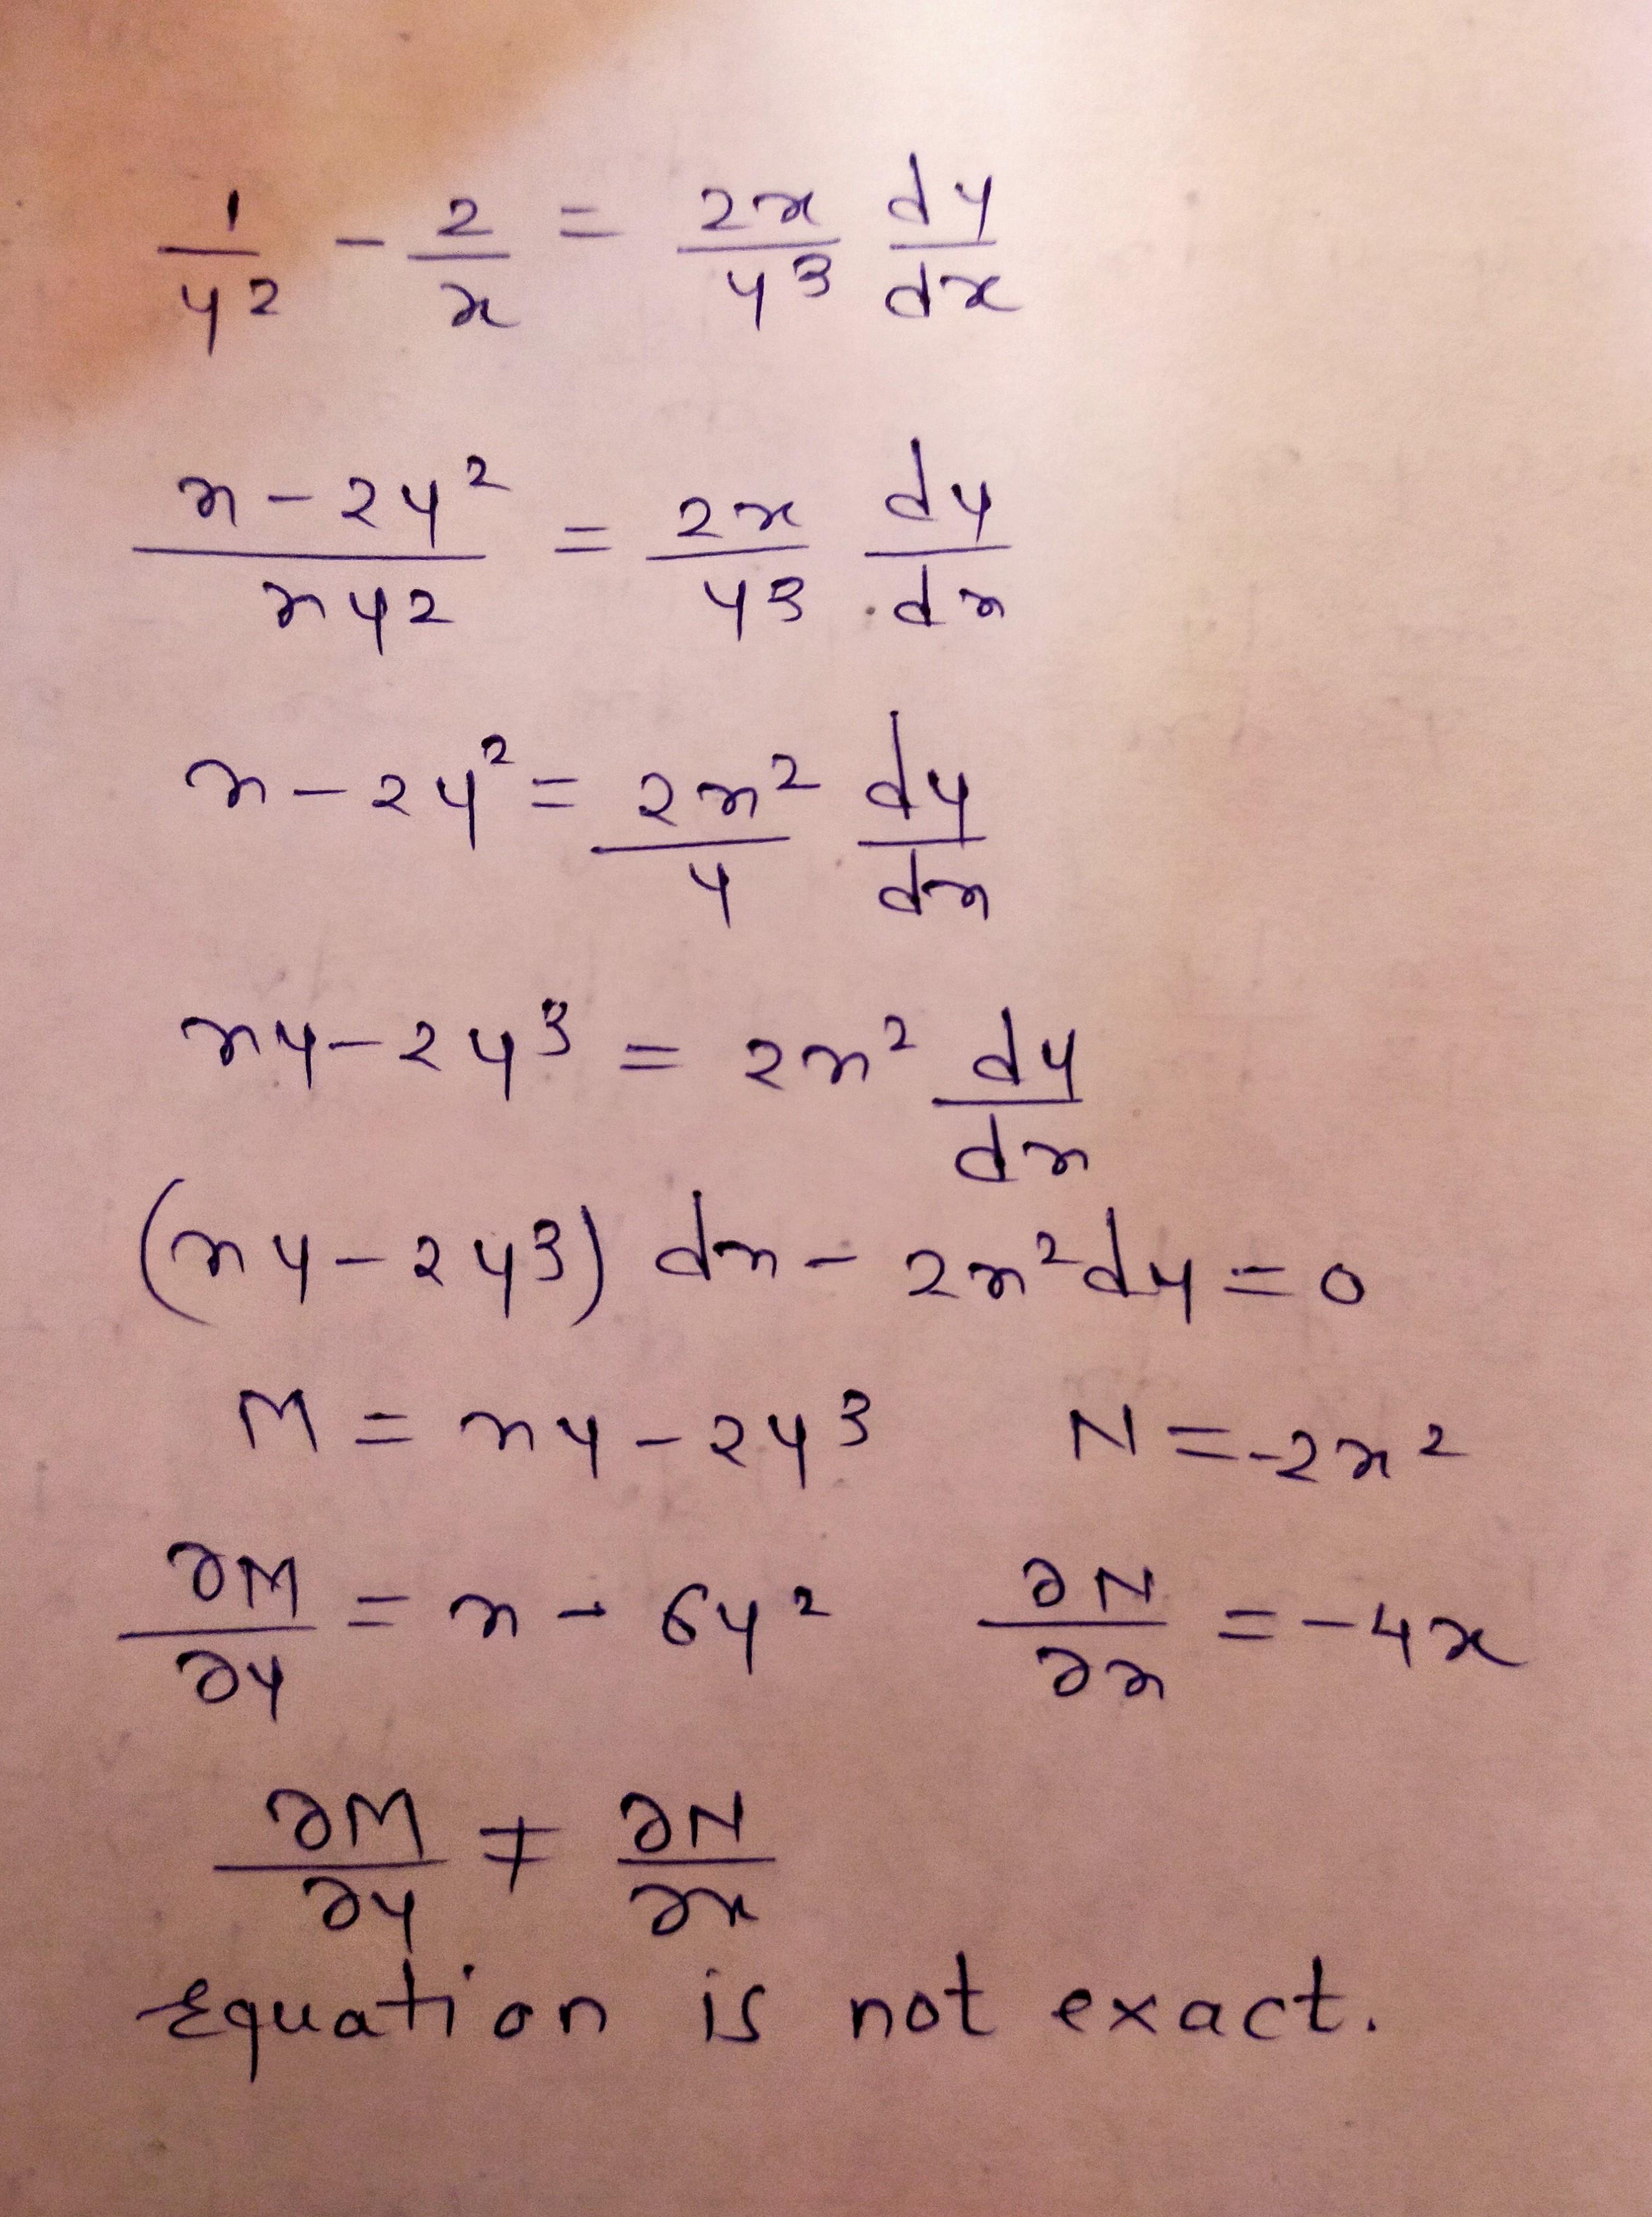 1/y² - 2/x = 2x/y³ dy/dx
x - 2y² / xy² = 2x/y³ . dy/dx
x - 2y² = 2x²/y dy/dx
xy - 2y³ = 2x² dy/dx
(xy - 2y³) dx - 2x²dy = 0
M = xy - 2y³ N = -2x²
∂M/∂y = x - 6y² ∂N/∂x = -4x
∂M/∂y ≠ ∂N/∂x
Equation is not exact.